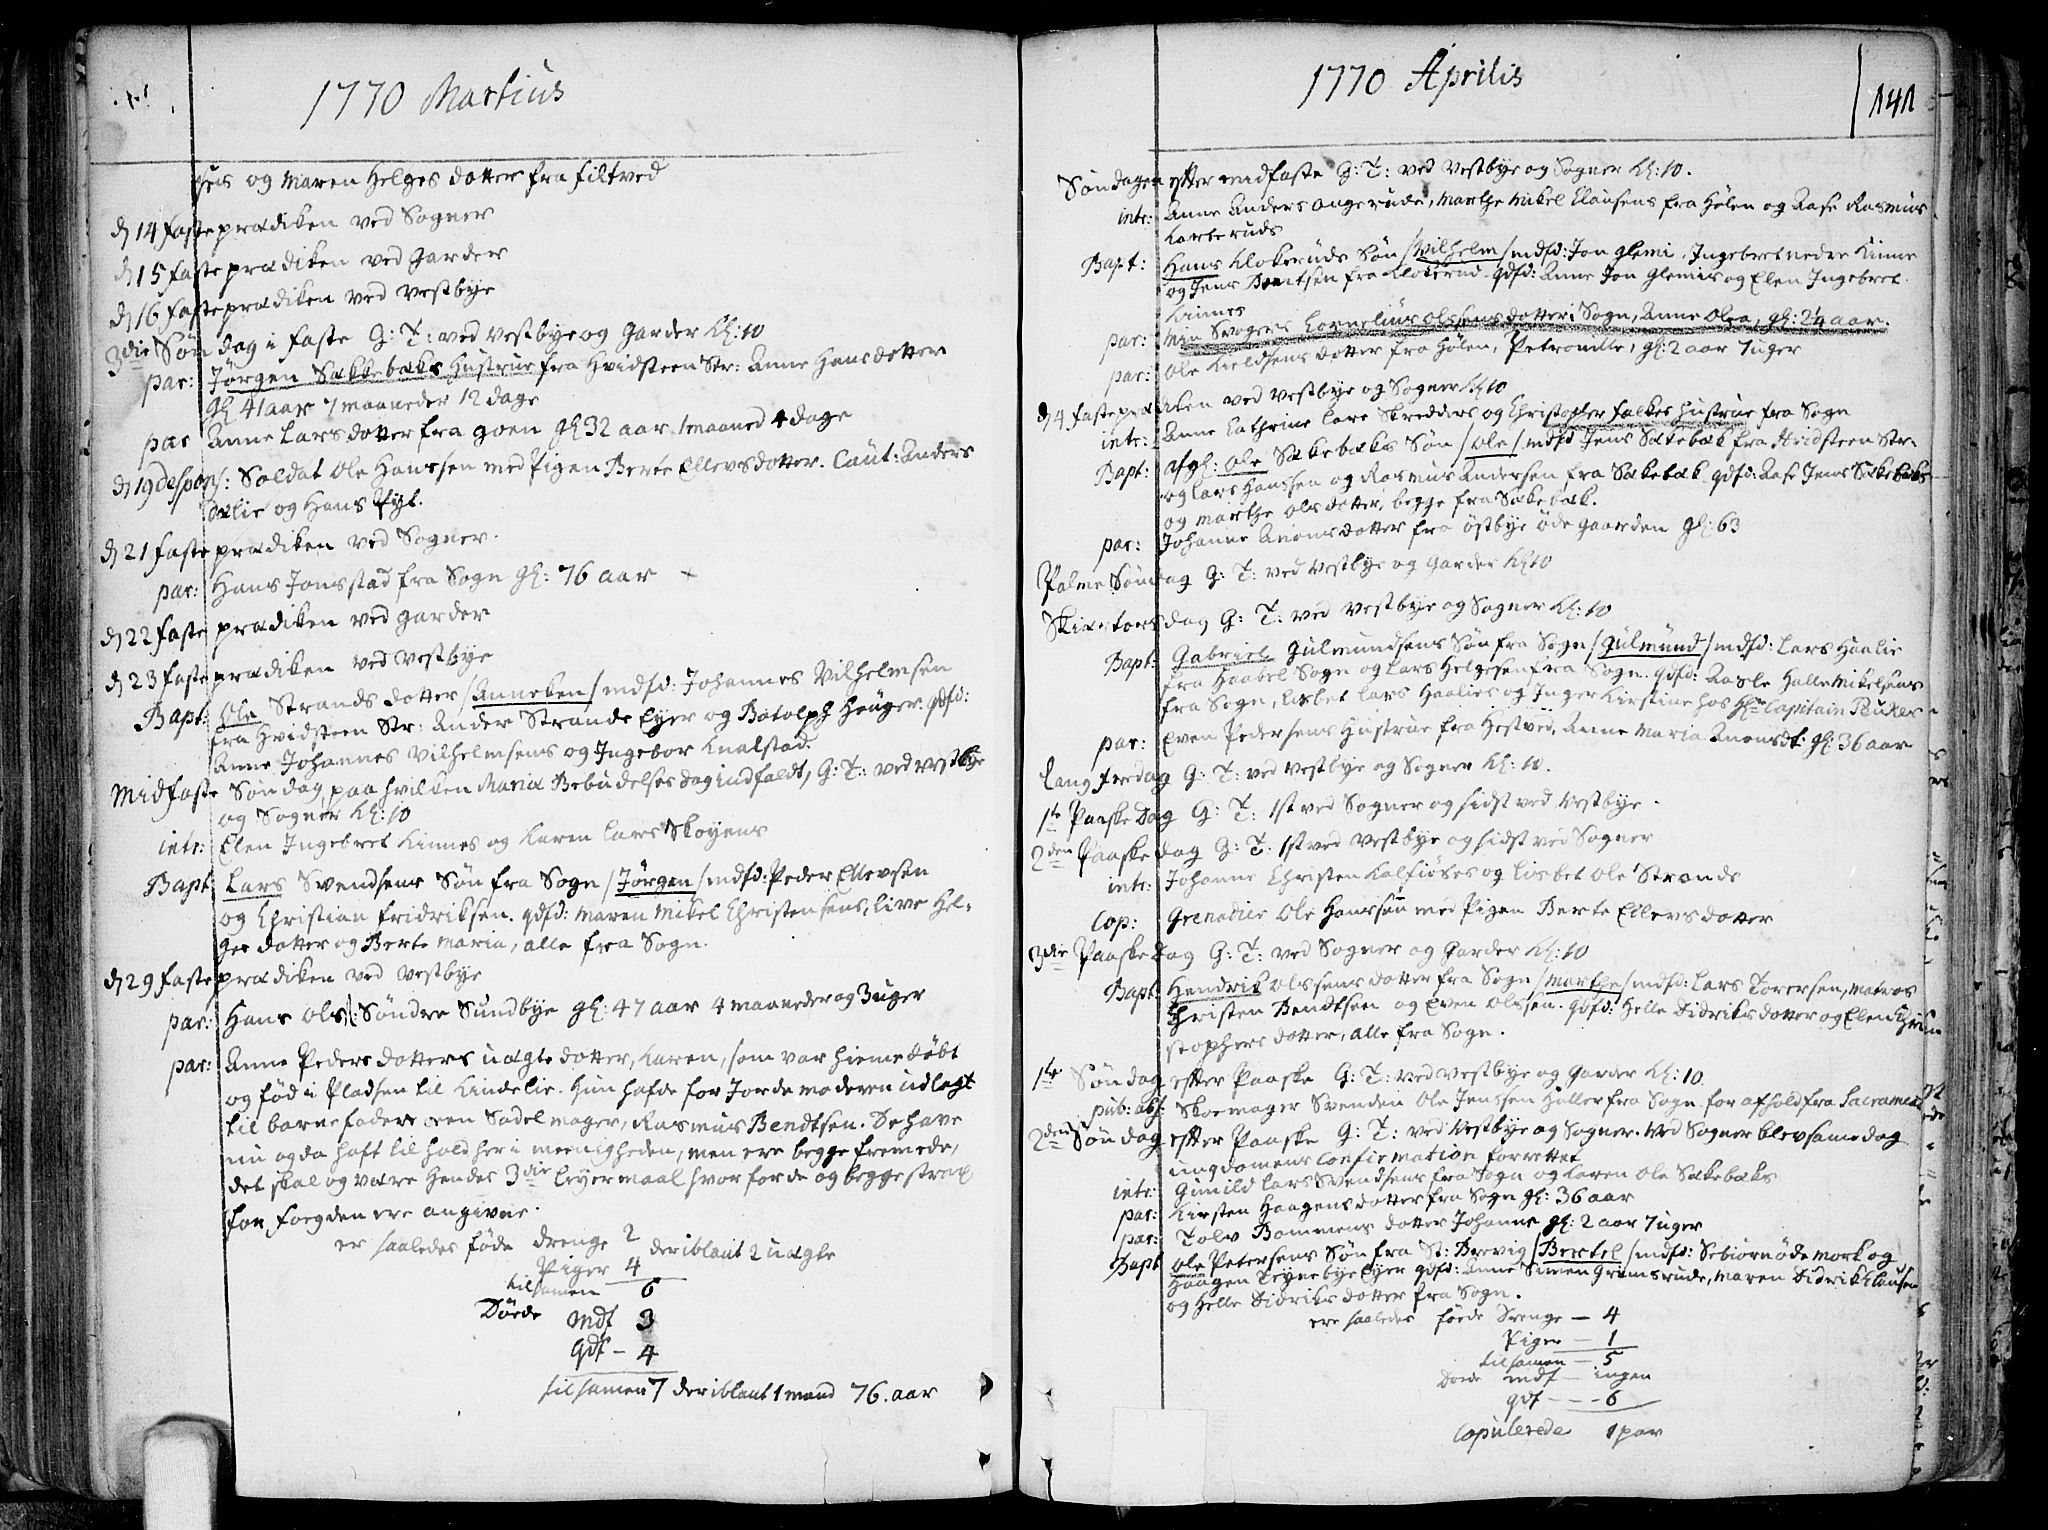 1770 Martius
sens og Maren Helges dotter fra filtved
d 14 fasteprædiken ved Sogner
d 15 fasteprædiken ved Garder
d 16 fasteprædiken ved Vestbye
3die Søndag i faste G: T: ved Vestbye og Garder Kl: 10
par: Jørgen Sækkebæks Hustrue fra Hvidsteen Str: Anne Hansdotter
gl 41 aar 7 maaneder 12 dage
par Anne Larsdotter fra goen gl 32 aar 1 maaned 4 dage
d 19 despons: Soldat Ole Hanssen med Pigen Berte Ellevsdotter. Caut: Anders
Dælie og Hans
d 21 fasteprædiken ved Sogner.
par: Hans Jonsstad fra Sogn gl: 76 aar
d 22 faste prædiken ved Garder
d 23 fasteprædiken ved Vestbye
Bapt: Ole Strands dotter /Anneken/ mdfd: Johannes Vilhelmsen
fra Hvidsteen Str: Ander Strande Eyer og Botolph Hauger. qdfd:
Anne Johannes Vilhelmsens og Ingebor Knalstad.
Midfaste Søndag, paa hvilken Mariæ Bebudelses dag indfaldt, G: T: ved Vestbye
og Sogner Kl: 10
intr: Elen Ingebret Kinnes og Karen Lars Skoyens
Bapt: Lars Svendsens Søn fra Sogn /Jørgen/ mdfd: Peder Ellevsen
og Christian fridriksen. qdfd: Maren Mikel Christensens, Live Hel-
ges dotter og Berte Maria, alle fra Sogn.
d 29 fasteprædiken ved Vestbye
par: Hans Ols: Søndre Sundbye gl: 47 aar 4 maaneder og 3 uger
par: Anne Peders dotters uægte dotter, Karen, som var hiemedøbt
og fød i Pladsen til Kindelie. Hun hafde for Jordemoderen udlagt
til barnefader een Sadelmager, Rasmus Bendtsen. De have
nu og da haft tilhold her i meenigheden, men ere begge fremede,
det skal og være hendes 3die Leyermaal hvorfor de og begge strax
for foegden ere angivne.
er saaledes føde drenge 2
Piger 4 deriblant 2 uægte
tilsamen 6
Døde mdf 3
qdf - 4
tilsamen 7 deriblant 1 mand 76. aar
1770 Aprilis
141
Søndagen efter midfaste G: T: ved Vestbye og Sogner Kl: 10.
intr: Anne Anders Ongerude, Marthe Mikel Clausens fra Hølen og Aase Rasmus
Korterruds
Bapt: Hans Klokeruds Søn /Vilhelm/ mdfd: Jon Glemi, Ingebret nedre Kinne
og Jens Berntsen fra Klokerud. qdfd: Anne Jon Glemis og Elen Ingebret
Kinnes
par: Min Svogers Cornelius Olssens dotter i Sogn, Anne Olea, gl: 2¼ aar.
par: Ole Kieldsens dotter fra Hølen, Petronille, gl: 2 aar 7 uger
d 4 fasteprædiken ved Vestbye og Sogner Kl 10
intr: Anne Cathrine Lars Skredders og Christopher Falkes Hustrue fra Sogn
Bapt: afgl: Ole Sækebæks Søn /Ole/ mdfd Jens Sækebæk fra Hvidsteen Str:
og Lars Hanssen og Rasmus Andersen fra Sækebæk. qdfd: Aase Jens Sækebæks
og Marthe Olsdotter, begge fra Sækebæk.
par: Johanne Anonsdotter fra østbye ødegaarden gl: 63
Palme Søndag G: T: ved Vestbye og Garder Kl 10
Skiertorsdag G: T: ved Vestbye og Sogner Kl: 10
Bapt: Gabriel Gulmundsens Søn fra Sogn /Gulmund/ mdfd: Lars Haalie
fra Haabel Sogn og Lars Helgesen fra Sogn. qdfd: Aasle Halle Mikelsens
fra Sogn, Lisbet Lars Haalies og Inger Kirstine hos Hr Capitain Peukers
par: Even Pedersens Hustrue fra Hestved. Anne Maria Anonsdt: gl: 36 aar
Langfredag G: T: ved Vestbye og Sogner Kl: 10.
1te Paaske Dag G: T: 1st ved Sogner og sidst ved Vestbye.
2den Paaske dag G: T: 1st ved Vestbye og sidst ved Sogner
intr: Johanne Christen Kalfiøses og Lisbet Ole Strands
Cop: Grenadier Ole Hanssen med Pigen Berte Ellevsdotter
3die Paaske Dag G: T: ved Sogner og Garder Kl: 10
Bapt: Hendrik Olssens dotter fra Sogn /Marthe/ mdfd: Lars Torersen, matros
Christen Bendtsen og Even Olssen. qdfd: Helle Didriksdotter og Elen Chri-
stophers dotter, alle fra Sogn.
1te Søndag efter Paaske G: T: ved Vestbye og Garder Kl: 10.
pub: abs: Skoemager Svenden Ole Jenssen Haller fra Sogn for afhold fra Sacramentet
2den Søndag efter Paaske G: T: ved Vestbye og Sogner. Ved Sogner blev same dag
ungdomens Confirmation forrettet
intr: Gunild Lars Svendsens fra Sogn og Karen Ole Sækebæks
par: Kirsten Haagens dotter fra Sogn gl: 36 aar
par: Tolv Bommens dotter Johanne gl: 2 aar 7 uger
Bapt: Ole Petersens Søn fra St: Brevig /Bertel/ mdfd: Sebiørn ødemork og
Haagen Teynebye Eyer qdfd: Anne Simen Gramsrude, Maren Didrik Clausen
og Helle Didriks dotter fra Sogn.
ere saaledes føede Drenge - 4
Piger - 1
tilsamen - 5
Døde mdf - ingen
qdf - - - 6
Copulerede 1 par